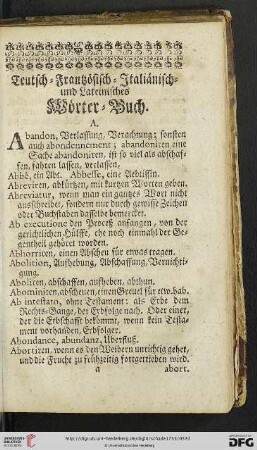 Teutsch-Frantzösisch-Italiänisch-
und Lateinisches
Wörter-Buch.
A.
Abandon, Verlassung, Verachtung; sonsten
auch abondonnement; abandoniren eine
Sache abandoniren, ist so viel als abschaf-
fen, fahren lassen, verlassen,
Abbé, ein Abt. Abbesse, eine Aebtissin.
Abreviren, abkürtzen, mit kurtzen Worten geben.
Abreviatur, wenn man ein gantzes Wort nicht
ausschreibet, sondern nur durch gewisse Zeichen
oder Buchstaben dasselbe bemercket.
Ab executione den Proceß anfangen, von der
gerichtlichen Hülffe, ehe noch einmahl der Ge-
gentheil gehöret worden.
Abhorriren, einen Abscheu für etwas tragen.
Abolition, Aufhebung, Abschaffung, Vernichti-
gung.
Aboliren, abschaffen, aufheben, abthun.
Abominiren, abscheuen, einen Greuel für etw. hab.
Ab intestato, ohne Testament: als Erbe dem
Rechts-Gange, der Erbfolge nach. Oder einer,
der die Erbschafft bekommt, wenn kein Testa-
ment vorhanden, Erbfolger.
Abondance, abundanz, Uberfluß.
Abortiren, wenn es den Weibern unrichtig gehet,
und die Frucht zu frühzeitig fortgetrieben wird.
a abort.